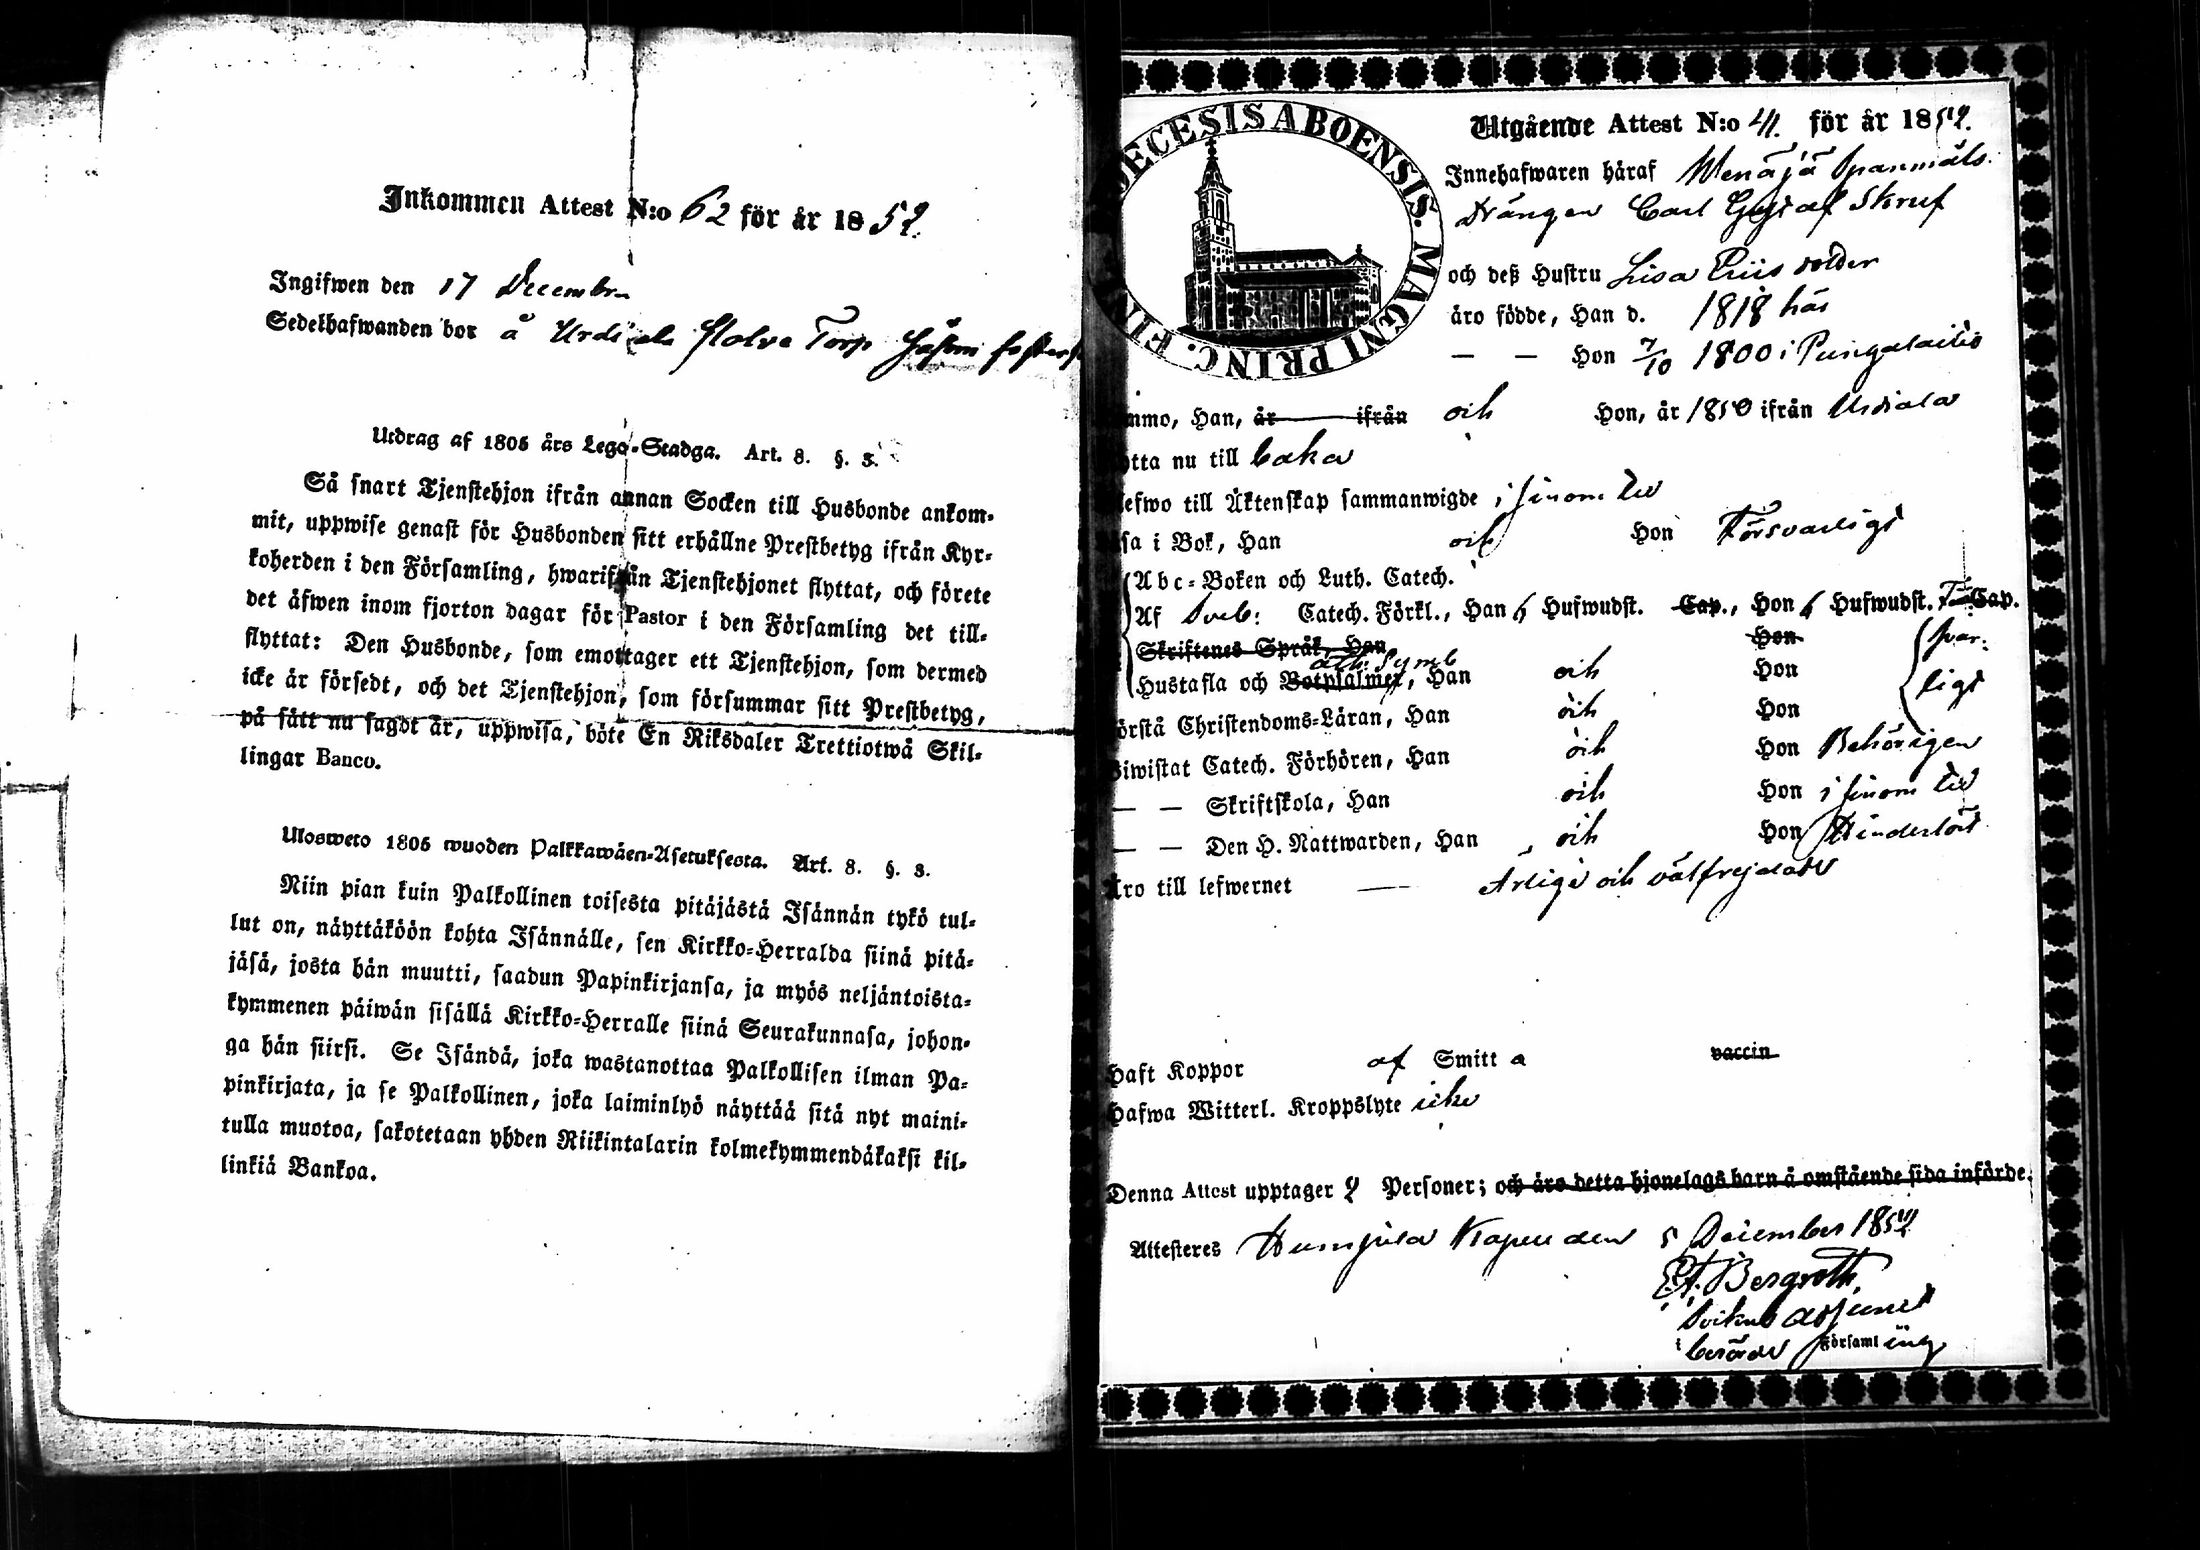 Inkommen Attest N:o 62 för år 1852.
Ingifwen den 17 Decembr
Sedelhafwanden bor å Urdiala Torp
Utdrag af 1805 års Lego-Stadga. Art. 8. §. 3.
Så snart Tjenstehjon ifrån annan Socken till Husbonde ankom-
mit, uppwise genast för Husbonden sitt erhållne Prestbetyg ifrån Kyr-
koherden i den Församling, hwarifrån Tjenstehjonet flyttat, och förete
det äfwen inom fjorton dagar för Pastor i den Församling det till-
flyttat: Den Husbonde, som emottager ett Tjenstehjon, som dermed
icke är försedt, och det Tjenstehjon, som försummar sitt Prestbetyg,
på sätt nu sagdt är, uppwisa, böte En Riksdaler Trettiotwå Skil-
lingar Banco.
Ulosweto 1805 wuoden Palkkawäen-Asetuksesta. Art. 8. §. 3.
Niin pian kuin Palkollinen toisesta pitäjästä Isännän tykö tul-
lut on, näyttäköön kohta Isännälle, sen Kirkko-Herralda siinä pitä-
jäsä, josta hän muutti, saadun Papinkirjansa, ja myös neljäntoista-
kymmenen päiwän sisällä Kirkko-Herralle siinä Seurakunnasa, johon-
ga hän siirsi. Se Isändä, joka wastanottaa Palkollisen ilman Pa-
pinkirjata, ja se Palkollinen, joka laiminlyö näyttää sitä nyt maini-
tulla muotoa, sakotetaan yhden Riikintalarin kolmekymmendäkaksi kil-
linkiä Bankoa.
DECESIS ABOENSIS. MAGNI PRINC. FIN
Utgående Attest N:o 41. för år 1852.
Innehafwaren häraf Menäjä Spanmåls.
Drängen Carl Gustaf Skruf
och deß Hustru Lisa
äro födde, Han d. 1818 här
— — Hon 7/10 1800 i Pungalaitio
mmo, Han, är ifrån och Hon, år 1850 ifrån Urdiala
ytta nu till baka
lefwo till Äktenskap sammanwigde
sa i Bok, Han och Hon Försvarligt
Abc-Boken och Luth. Catech.
Af Sveb: Catech. Förkl., Han 6 Hufwudst. Cap., Hon 6 Hufwudst. Cap.
Skriftenes Språk, Han Hon
Hustafla och Botpsalmer, ath. Symb Han och Hon
örstå Christendoms-Läran, Han och Hon
iwistat Catech. Förhören, Han och Hon Behörigen
— — Skriftskola, Han och Hon
— — Den H. Nattwarden, Han och Hon Hinderlöst
Äro till lefwernet — Ärlige och välfrejdade
Haft Koppor af Smitta vaccin
Hafwa Witterl. Kroppslyte icke
Denna Attest upptager 2 Personer; och äro detta hjonelags barn å omstående sida införde.
Attesteres Humppila Kapell den 5 December 1852
Bergroth,
adjunct
i berörde Församling